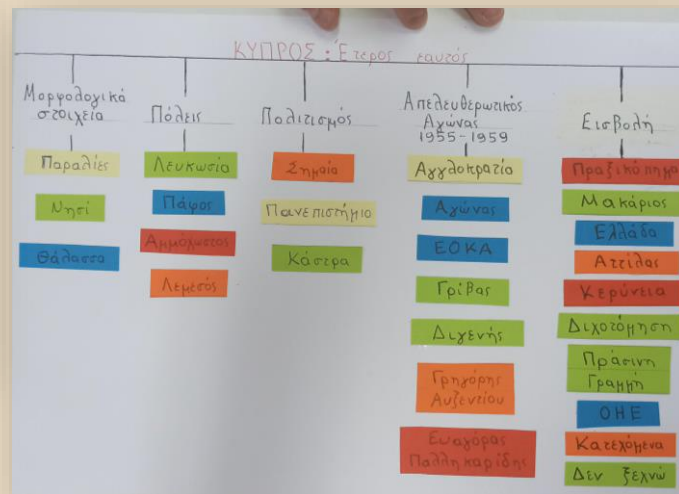 ΚΥΠΡΟΣ: Έτερος εαυτός
Μορφολογικά
στοιχεία
Παραλίες
Νησί
Θάλασσα
Πόλεις
Λευκωσία
Πάφος
Αμμόχωστος
Λεμεσός
Πολιτισμός
Σημαία
Πανεπιστήμιο
Κάστρα
Απελευθερωτικός
Αγώνας
1955-1959
Αγγλοκρατία
Αγώνας
ΕΟΚΑ
Γρίβας
Διγενής
Γρηγόρης
Αυξεντίου
Ευαγόρας
Παλληκαρίδης
Εισβολή
Πραξικόπημα
Μακάριος
Ελλάδα
Αττίλας
Κερύνεια
Διχοτόμηση
Πράσινη
Γραμμή
ΟΗΕ
Κατεχόμενα
Δεν ξεχνώ